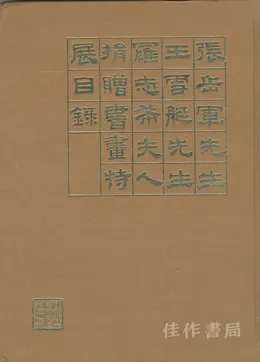 張岳軍先生
王雪艇先生
羅志希夫人
捐贈書畫特
展目錄
佳作書局